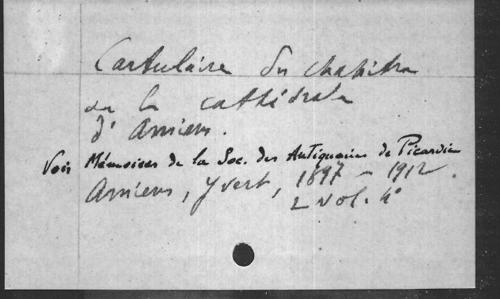 Cartulaire du chapitre
de la cathédrale
d'Amiens.
Voir Mémoires de la Soc. des Antiquaires de Picardie
Amiens, Yvert, 1897 - 1912.
2 vol. 4°